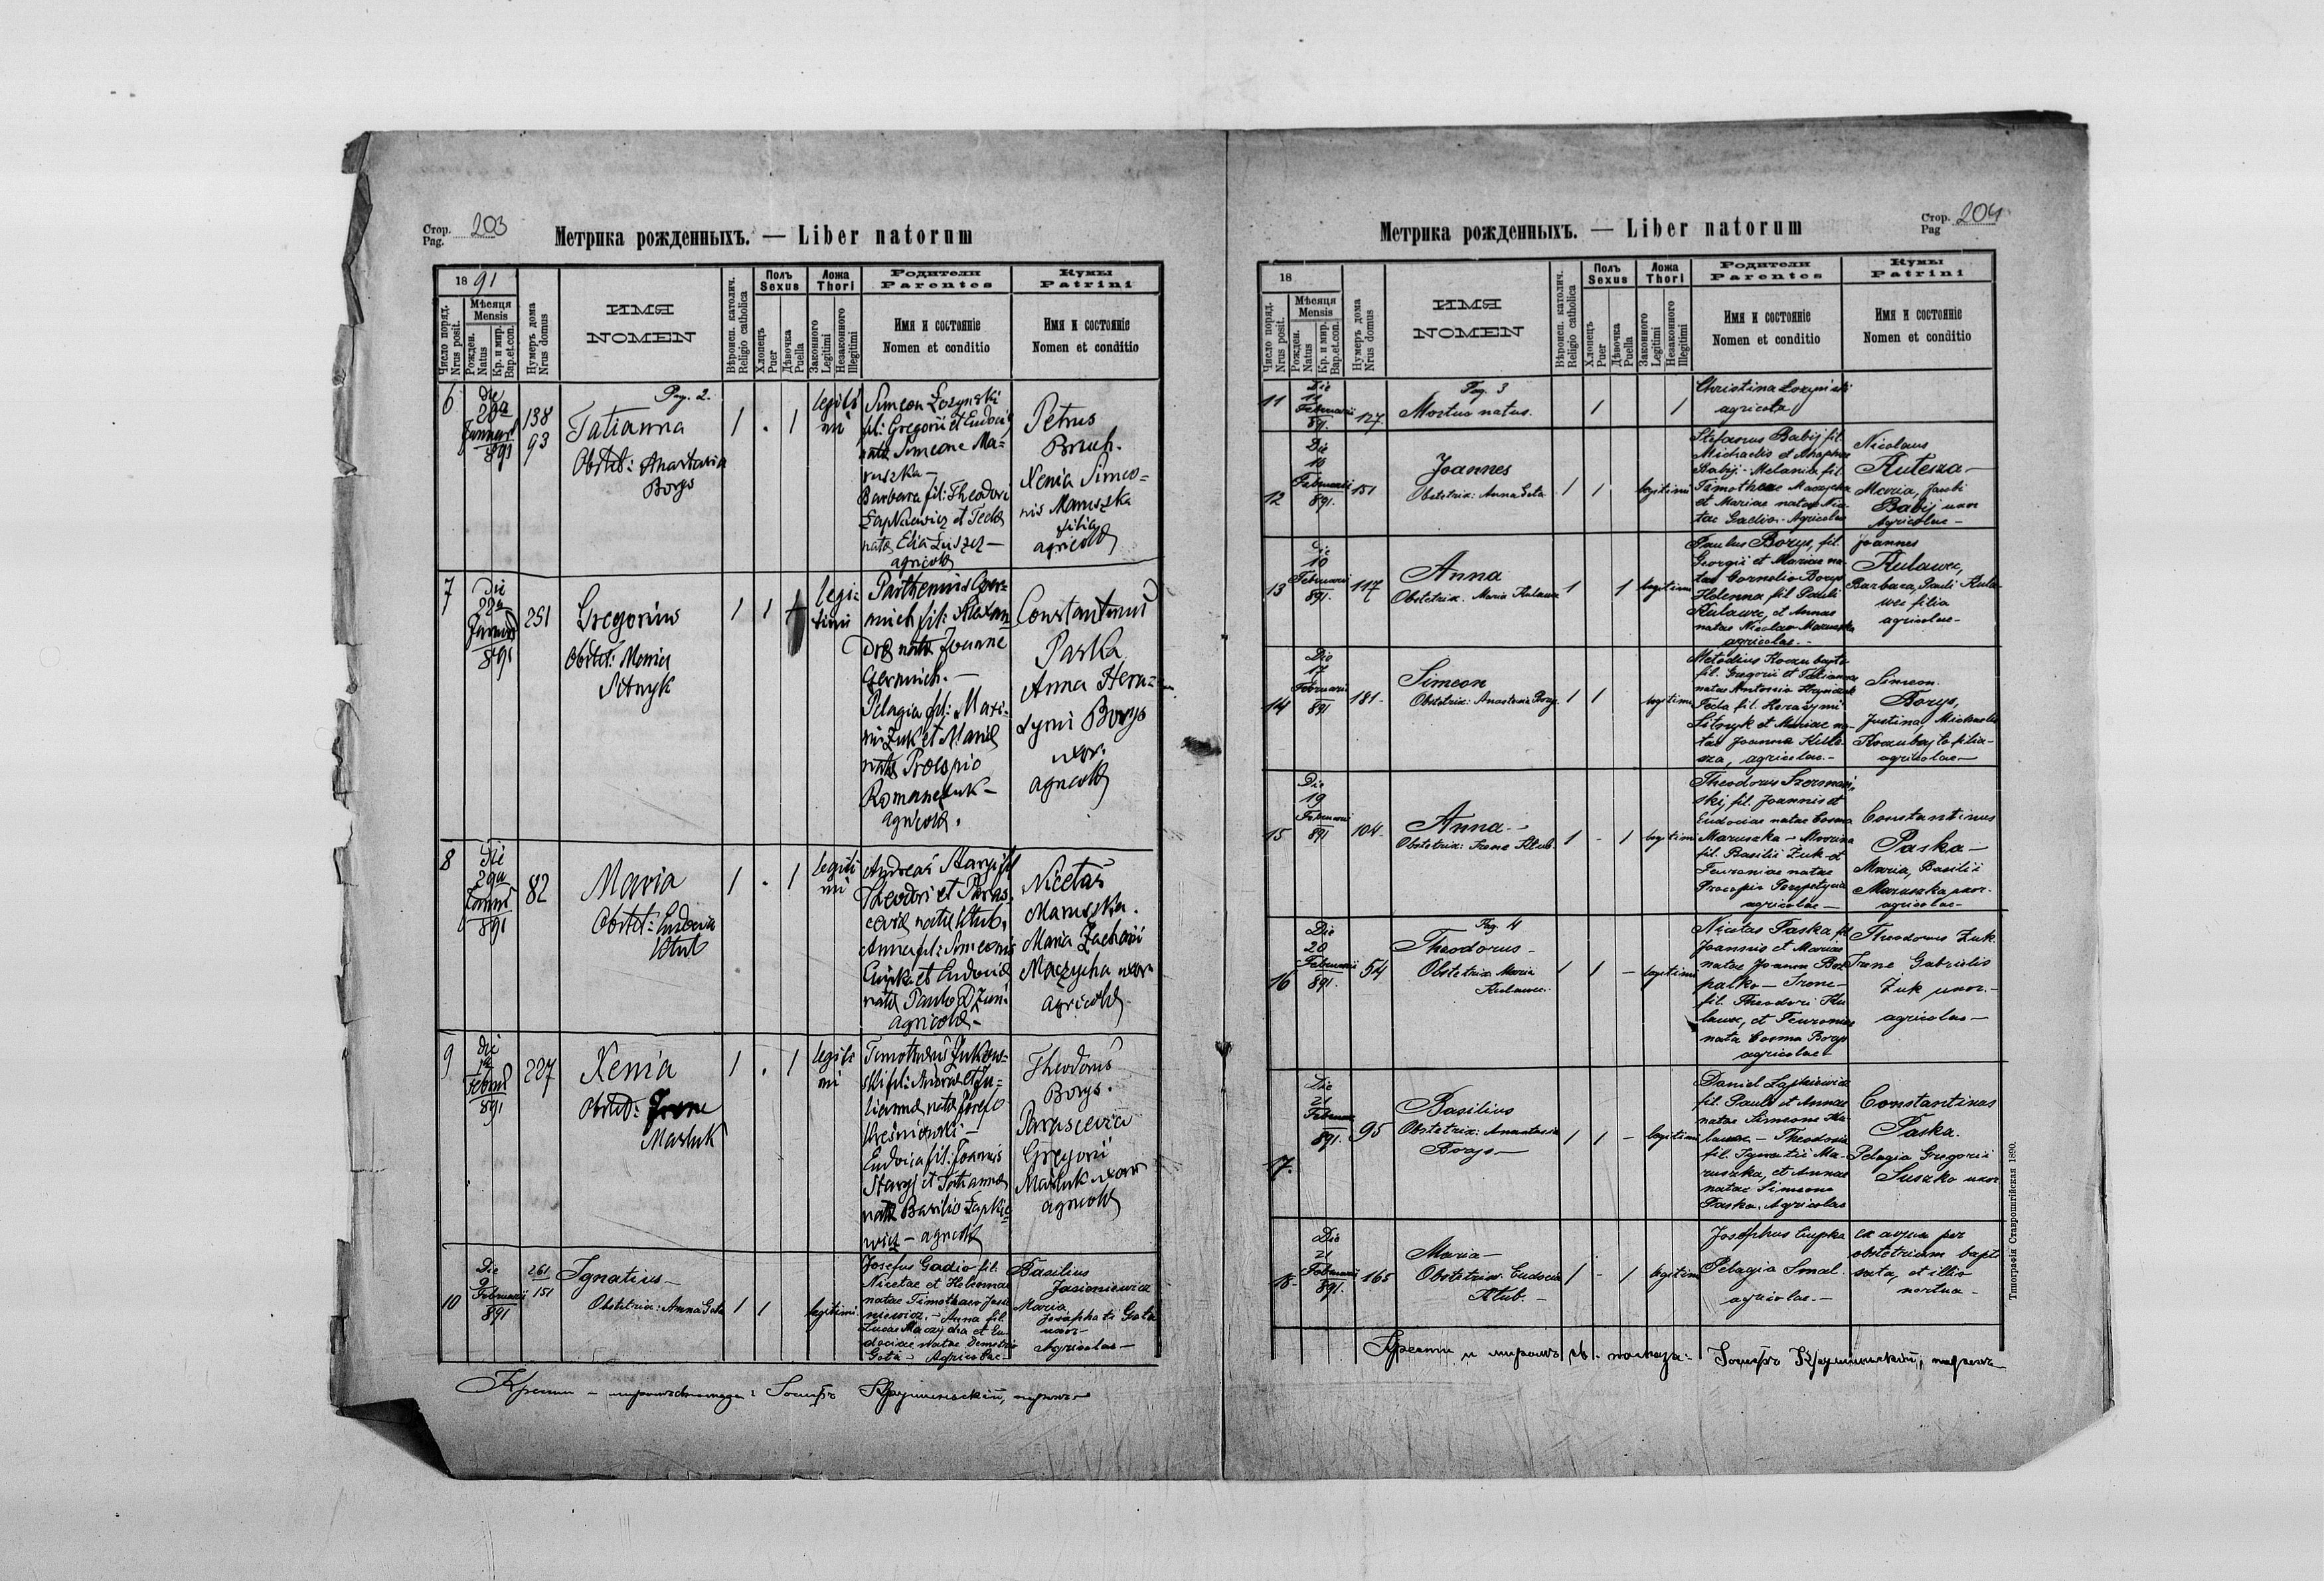 Стор.
Pag. 203
Метрика рожденныхъ. — Liber natorum
1891
Число поряд.
Nrus posit.
Мѣсяця
Mensis
Рожден.
Natus
Кр. и мир.
Bap. et con.
Нумеръ дома
Nrus domus
ИМЯ
NOMEN
Вѣроисп. католич.
Religio catholica
Полъ
Sexus
Хлопецъ
Puer
Дѣвочка
Puella
Ложа
Thori
Законного
Legitimi
Незаконного
Illegitimi
Родители
Parentes
Имя и состояніе
Nomen et conditio
Кумы
Patrini
Имя и состояніе
Nomen et conditio
6
Die
891
138
93
Pag. 2.
Tatianna
Obstet: Anastasia
Borys
1 . 1
legiti
mi
Simeon Łozynski
fil: Gregorii et Eudociæ
natæ Simeone Ma=
ruszka —
Barbara fil: Theodori
Łapkiewicz et Teclæ
natæ Elia Łuszcz —
agricolæ
Petrus
Bruch.
Xenia Simeo=
nis Maruszka
filia
agricolæ
7
Die
891
251
Gregorius
Obstet: Maria
Sitnyk
1 1
legi=
timi
Parthenius Czer=
mich fil: Alexan
dræ natæ Joanne
Czermich. —
Pelagia fil: Maxi=
mi Zuk et Mariæ
natæ Procopio
Romanczuk —
agricolæ.
Constantinus
Paska
Anna Hera=
symi Borys
uxor
agricolæ
8
Die
29a
891
82
Maria
Obstet: Eudocia
Kłub
1 . 1
legiti
mi
Andreas Staryj fil
Theodori et Paras
ceviæ natæ Kłub.
Anna fil: Simeonis
Ciupka et Eudociæ
natæ Paulo Dziuni
agricolæ —
Nicetas
Maruszka.
Maria Zachari
Maczycha uxor
agricolæ
9
die
891
227
Xenia
Obstet: Irene
Masluk
1 . 1
legiti
mi
Timotheus Zukow=
ski fil: Andreæ et Ju=
liannæ natæ Josefo
Eudocia fil: Joannis
Staryj et Tatiannæ
natæ Basilio Łapkie=
wicz — agricolæ
Theodorus
Borys.
Parascevia
Gregorii
Masluk uxor
agricolæ
10
Die
9
Februarii
891
261
151
Ignatius —
Obstetrix: Anna Gata
1 1
legitimi.
Josefus Gadio fil.
Nicetae et Helennae
natae Timotheo Jasio
niewicz. — Anna fil.
Lucae Maczycha et Eu
dociae natae Demetrio
Gota — Agricolae —
Basilius
Jasioniewicz
Maria,
Josaphati Gata
uxor —
Agricolae —
Стор.
Pag 204
Метрика рожденныхъ. — Liber natorum
18
Число поряд.
Nrus posit.
Мѣсяця
Mensis
Рожден.
Natus
Кр. и мир.
Bap. et con.
Нумеръ дома
Nrus domus
ИМЯ
NOMEN
Вѣроисп. католич.
Religio catholica
Полъ
Sexus
Хлопецъ
Puer
Дѣвочка
Puella
Ложа
Thori
Законного
Legitimi
Незаконного
Illegitimi
Родители
Parentes
Имя и состояніе
Nomen et conditio
Кумы
Patrini
Имя и состояніе
Nomen et conditio
11
Die
11
Februarii
891.
127.
Pag. 3
Mortuo natus.
1 1
Christina Łozynski
agricola
12
Die
15
Februarii
891.
151
Joannes
Obstetrix: Anna Gata
1 1
legitimi
Stefanus Babij fil.
Babij — Melania fil.
Timotheae Maczycha
et Mariae natae Nice
tae Gadio — Agricolae
Nicolaus
Kutesza —
Maria, Jacobi
Babij uxor
Agricolae —
13
10
Februarii
891.
117
Anna
Obstetrix: Maria Kulawec
1 1
legitimi
Paulus Borys, fil.
Georgii et Mariae na-
tae Cornelio Borys
Helenna fil Pauli
Kulawec, et Annae
natae Nicolao Maruszka
agricolae. —
Joannes
Kulawec,
Barbara, Pauli Kula
wec filia
agricolae —
14
Die
17
Februarii
891
181.
Simeon
Obstetrix: Anastasia Borys
1 1
legitimi
Metodius Koczubajto
fil. Gregorii et Tatiannae
Tecla fil. Herasymi
Sitnyk et Mariae na-
tae Joanne Kute-
sza, agricolae —
Simeon.
Borys,
Justina, Michaelis
Koczubajto filia —
agricolae —
15
Die
19
Februarii
891
104.
Anna. —
Obstetrix: Irene Kłub.
1 - 1
legitimi
ski, fil. Joannis et
Eudociae natae Cosma
Maruszka —
fil. Basilii Zuk et
Feuroniae natae
agricolae —
Constantinus
Paska —
Maria, Basilii
Maruszka uxor.
agricolae —
16
Die
20
Februarii
891.
54
Pag. 4
Theodorus —
Obstetrix Maria
Kulawec.
1 1 -
legitimi
Nicetas Paska fil
Joannis et Mariae
palko — Irene —
fil. Theodori Ku
lawec, et Feuroniae
nata Cosma Borys
agricolae —
Theodorus Zuk.
Irene Gabrielis
Zuk uxor. —
agricolae —
17.
Die
21
Februarii
891.
95
Basilius
Obstetrix: Anastasia
Borys —
1 1 -
legitimi
Daniel Łapkiewicz
fil. Paulo et Annae
natae Simeone Ku
lawec — Theodosia
fil. Ignatii Ma-
ruszka, et Annae
natae Simeone
Paska. Agricolae
Constantinus
Paska.
Pelagia Gregorii
Suszko uxor
18
Die
21
Februarii
891.
165
Maria —
Obstetrix: Eudocia
Kłub. —
1 - 1
legitimi
Josephus Ciupka
Pelagia Smal.
agricolae. —
ex aqua per
obstetricem bapt
sata, et illis
mortua —
Типографія Ставропигійская 1890.